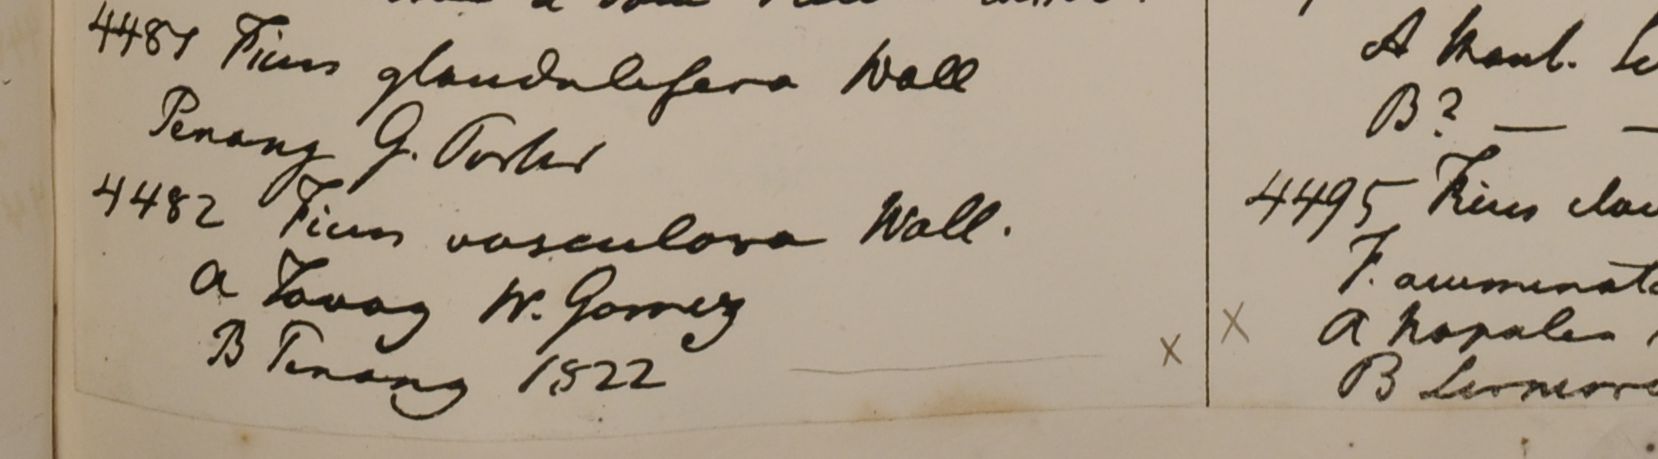 4481 Ficus glandulifera Wall
Penang G. Porter
4482 Ficus vasculosa Wall.
a Tavoy W. Gomez
B Penang 1822
A
B? — —
4495 Ficus
F. acuminata
a Napalia
B